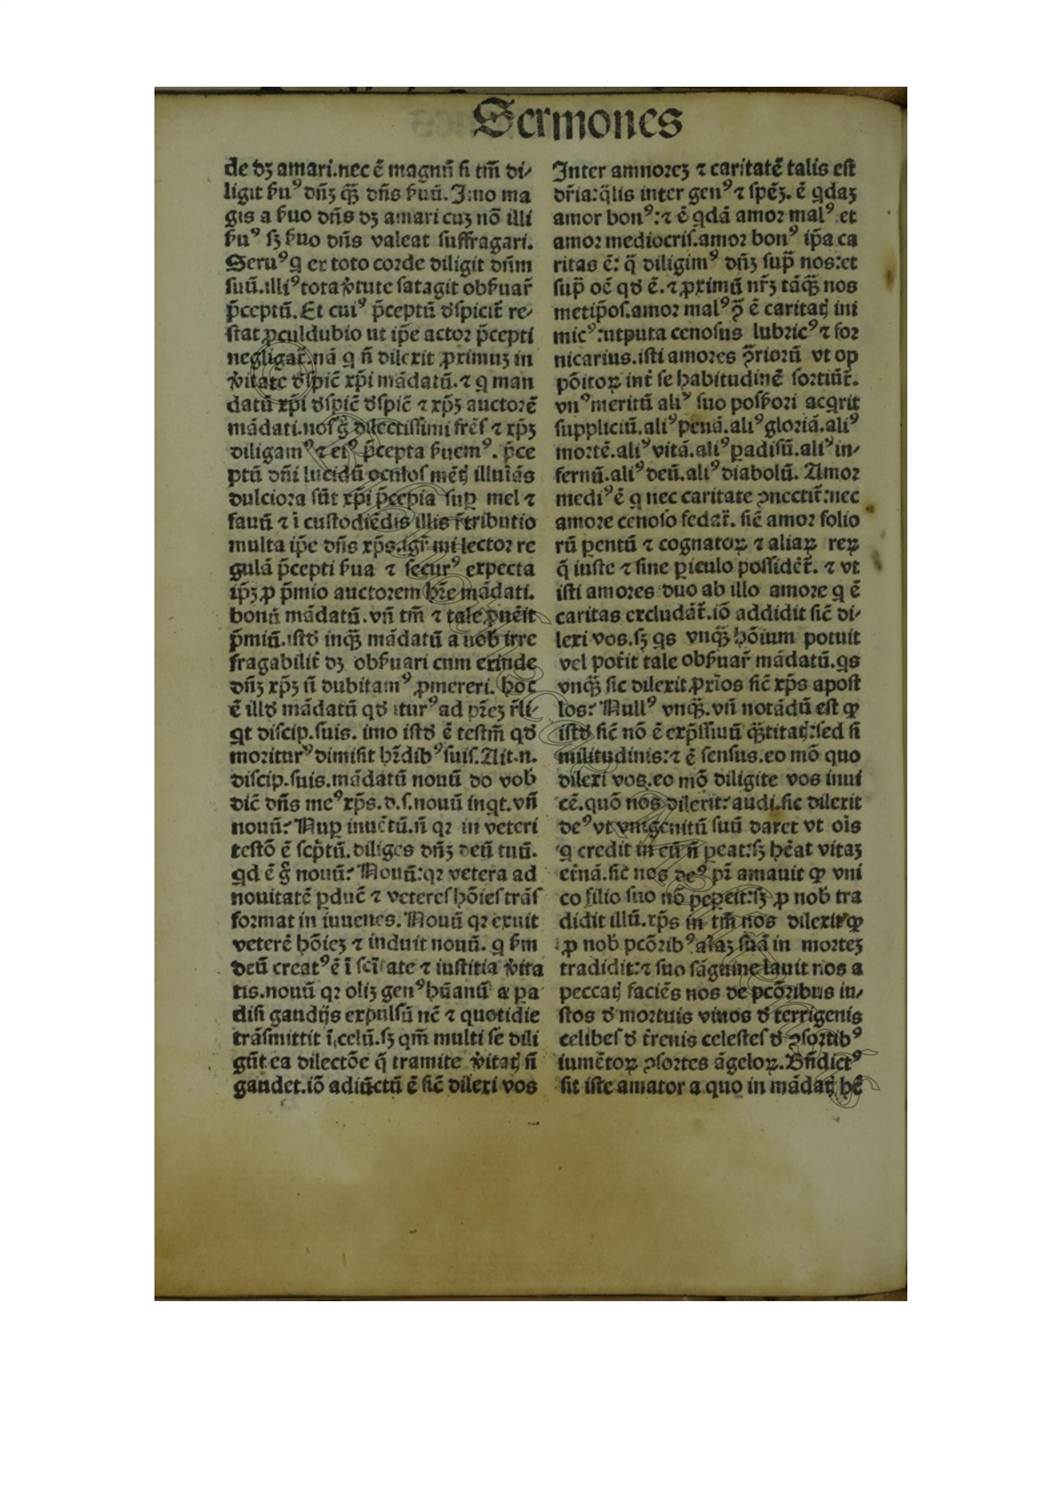 Sermones
de dʒ amari.nec ē magnū si tm̄ di⸗
ligit ẜuꝰ dn̄ʒ qͣꝫ dn̄s ẜuū. Imo ma
gis a ẜuo dn̄s dʒ amari cuʒ nō illi
ẜuꝰ sʒ ẜuo dn̄s valeat suffragari.
Seruꝰ q ex toto corde diligit dn̄m
suū.illiꝰ tota v̾tute satagit obẜuar̄
p̄ceptū. Et cuiꝰ p̄ceptū dspicit᷑ re⸗
stat ꝓculdubio ut ip̄e actor p̄cepti
negligat᷑.nā q n̄ dilexit ꝓximuʒ in
v̾itate dspic̄ xp̄i mādatū.⁊ q man
datū xp̄i dspic̄ dspic̄ ⁊ xp̄ʒ auctorē
mādati.nos g̊ dilectissimi fr̄es ⁊ xp̄ʒ
diligamꝰ ⁊ eiꝰ p̄cepta ẜuemꝰ. p̄ce
ptū dn̄i lucidū oculos mēt illuīās
dulciora sūt xp̄i p̄cepta sup̱ mel ⁊
fauū ⁊ ī custodiēdis illis r̄tributio
multa ip̄e dn̄s xp̄s.igr̄ mi lector re
gulā p̄cepti ẜua ⁊ securꝰ expecta
ip̄ʒ ꝓ p̄mio auctorem hr̄e mādati.
bonū mādatū.vn̄ tm̄ ⁊ tale ꝓuēit
p̄miū.istd inqͣꝫ mādatū a uob irre
fragabilit̾ dʒ obẜuari cum exinde
dn̄ʒ xp̄ʒ n̄ dubitamꝰ ꝓmereri. hoc
ē illd mādatū qd iturꝰ ad pr̄eʒ r̄li⸗
qt discip.suis. imo istd ē testm̄ qd
moriturꝰ dimisit hr̄dibꝰ suis.Ait.n.
discip.suis.mādatū nouū do vob
dic̄ dn̄s meꝰ xp̄s.d.s.nouū inqt.vn̄
nouū? Nup̱ inuētū.n̄ qꝛ in veteri
testō ē scp̄tū.diliges dn̄ʒ deū tuū.
qd ē g̊ nouū? Nouū:qꝛ vetera ad
nouitatē ꝑducē ⁊ veteres hōies trās
format in iuuenes. Nouū qꝛ exuit
veterē hōieʒ ⁊ induit nouū. q ẜm
deū creatꝰ ē ī sc̄itate ⁊ iustitia v̾ita
tis.nouū qꝛ oliʒ genꝰ hūanū a pa
disi gaudijs expulsū nc̄ ⁊ quotidie
trāsmittit ī celū.sʒ qm̄ multi se dili
gūt ea dilectōe q̄ tramite v̾itat n̄
gaudet.iō adiūctū ē sic̄ dilexi vos
Inter amnoreʒ ⁊ caritatē talis est
dr̄ia:qlis inter genꝰ ⁊ spēʒ. ē qdaʒ
amor bonꝰ:⁊ ē qdā amor malꝰ et
amor mediocris.amor bonꝰ ip̄a ca
ritas ē: q̄ diligimꝰ dn̄ʒ sup̄ nos:et
sup̄ oē qd ē.⁊ ꝓximū nr̄ʒ tāqͣꝫ nos
metip̄os.amor malꝰ q̄ ē caritat ini
micꝰ:utputa cenosus lubricꝰ ⁊ for
nicarius.isti amores ꝯ̄riorū vt op
pōitoꝝ int̾ se habitudinē sortiūt᷑.
vnꝰ meritū aliꝰ suo possori acqrit
suppliciū.aliꝰ penā.aliꝰ gloriā.aliꝰ
mortē.aliꝰ vitā.aliꝰ padisū.aliꝰ in⸗
fernū.aliꝰ deū.aliꝰ diabolū. Amor
mediꝰ ē q nec caritate ꝯnectit᷑:nec
amore cenoso fedat᷑. sic̄ amor folio
rū pentū ⁊ cognatoꝝ ⁊ aliaꝝ reꝝ
q̄ iuste ⁊ sine piculo possidēt᷑. ⁊ vt
isti amores duo ab illo amore q ē
caritas excludāt᷑.iō addidit sic̄ di⸗
lexi vos.sʒ qs vnqͣꝫ hōium potuit
vel pot̾it tale obẜuar̄ mādatū.qs
vnqͣꝫ sic dilexit ꝓxīos sic̄ xp̄s apost
los? Nullꝰ vnqͣꝫ.vn̄ notādū est ꝙ
istd sic̄ nō ē exp̄ssiuū qͣꝫtitat:sed si
militudinis:⁊ ē sensus.eo mō quo
dilexi vos.eo mō diligite vos inui
cē.quō nos dilexit? audi.sic dilexit
deꝰ vt vnigenitū suū daret vt oīs
q credit in eū n̄ peat:sʒ hēat vitaʒ
et̾nā.sic̄ nos deꝰ pr̄ amauit ꝙ vni
co filio suo nō pep̱cit:sʒ ꝓ nob tra
didit illū.xp̄s in tm̄ nos dilexit ꝙ
ꝓ nob pcōribꝰ aīaʒ suā in morteʒ
tradidit:⁊ suo sāguine lauit nos a
peccat faciēs nos de pcōribus iu⸗
stos d mortuis viuos d terrigenis
celibes d t̾renis celestes d ꝯsortibꝰ
iumētoꝝ ꝯsortes āgeloꝝ.Bn̄dictꝰ
sit iste amator a quo in mādat hē